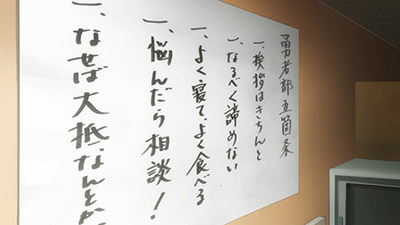 勇者部五箇条
一、挨拶はきちんと
一、なるべく諦めない
一、よく寝てよく食べる
一、悩んだら相談！
一、なせば大抵なんとか